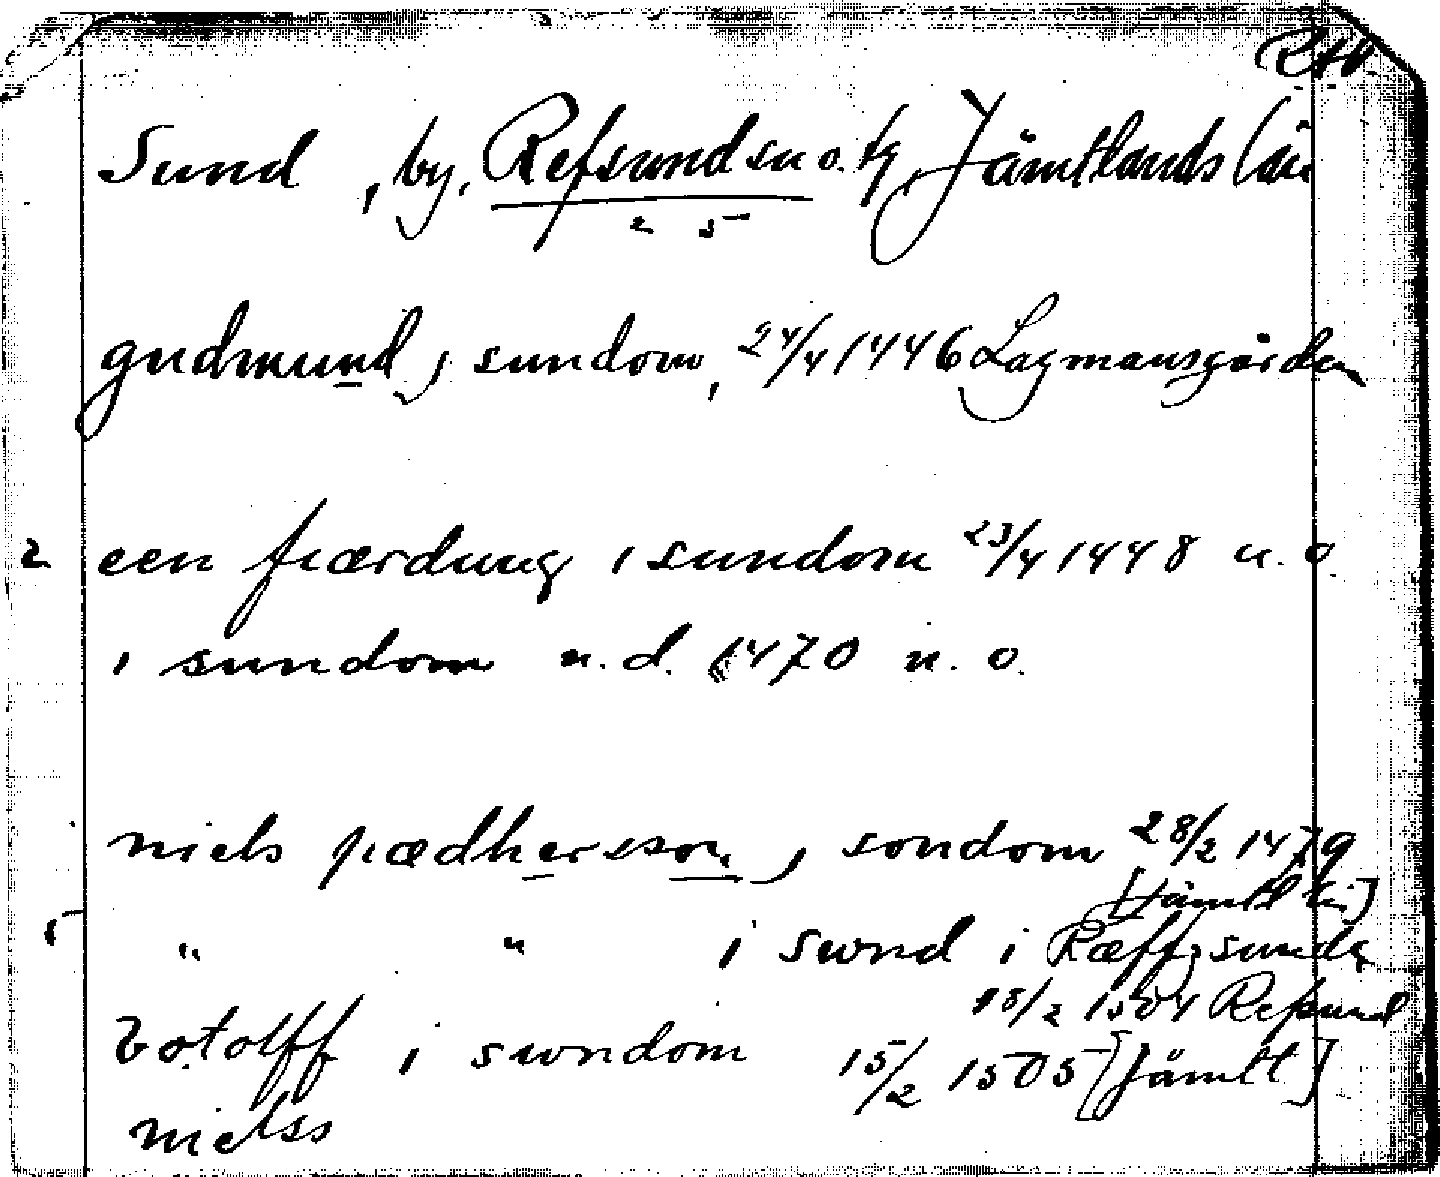 RAP.
Sund, by, Refsund sn o. tg, Jämtlands län
2 5
gudmund j sundom, 24/4 1446 Lagmansgården
2 een fiærdung i sundom 23/4 1448 u. o.
i sundom u. d. 1470 u. o.
niels pædhersson j sondom 28/2 1479
[Jämtl län]
5 " " i swnd i Ræffsunda
15/2 1504 Refsund
Botolff i swndom 15/2 1505 [Jämtl]
nielss